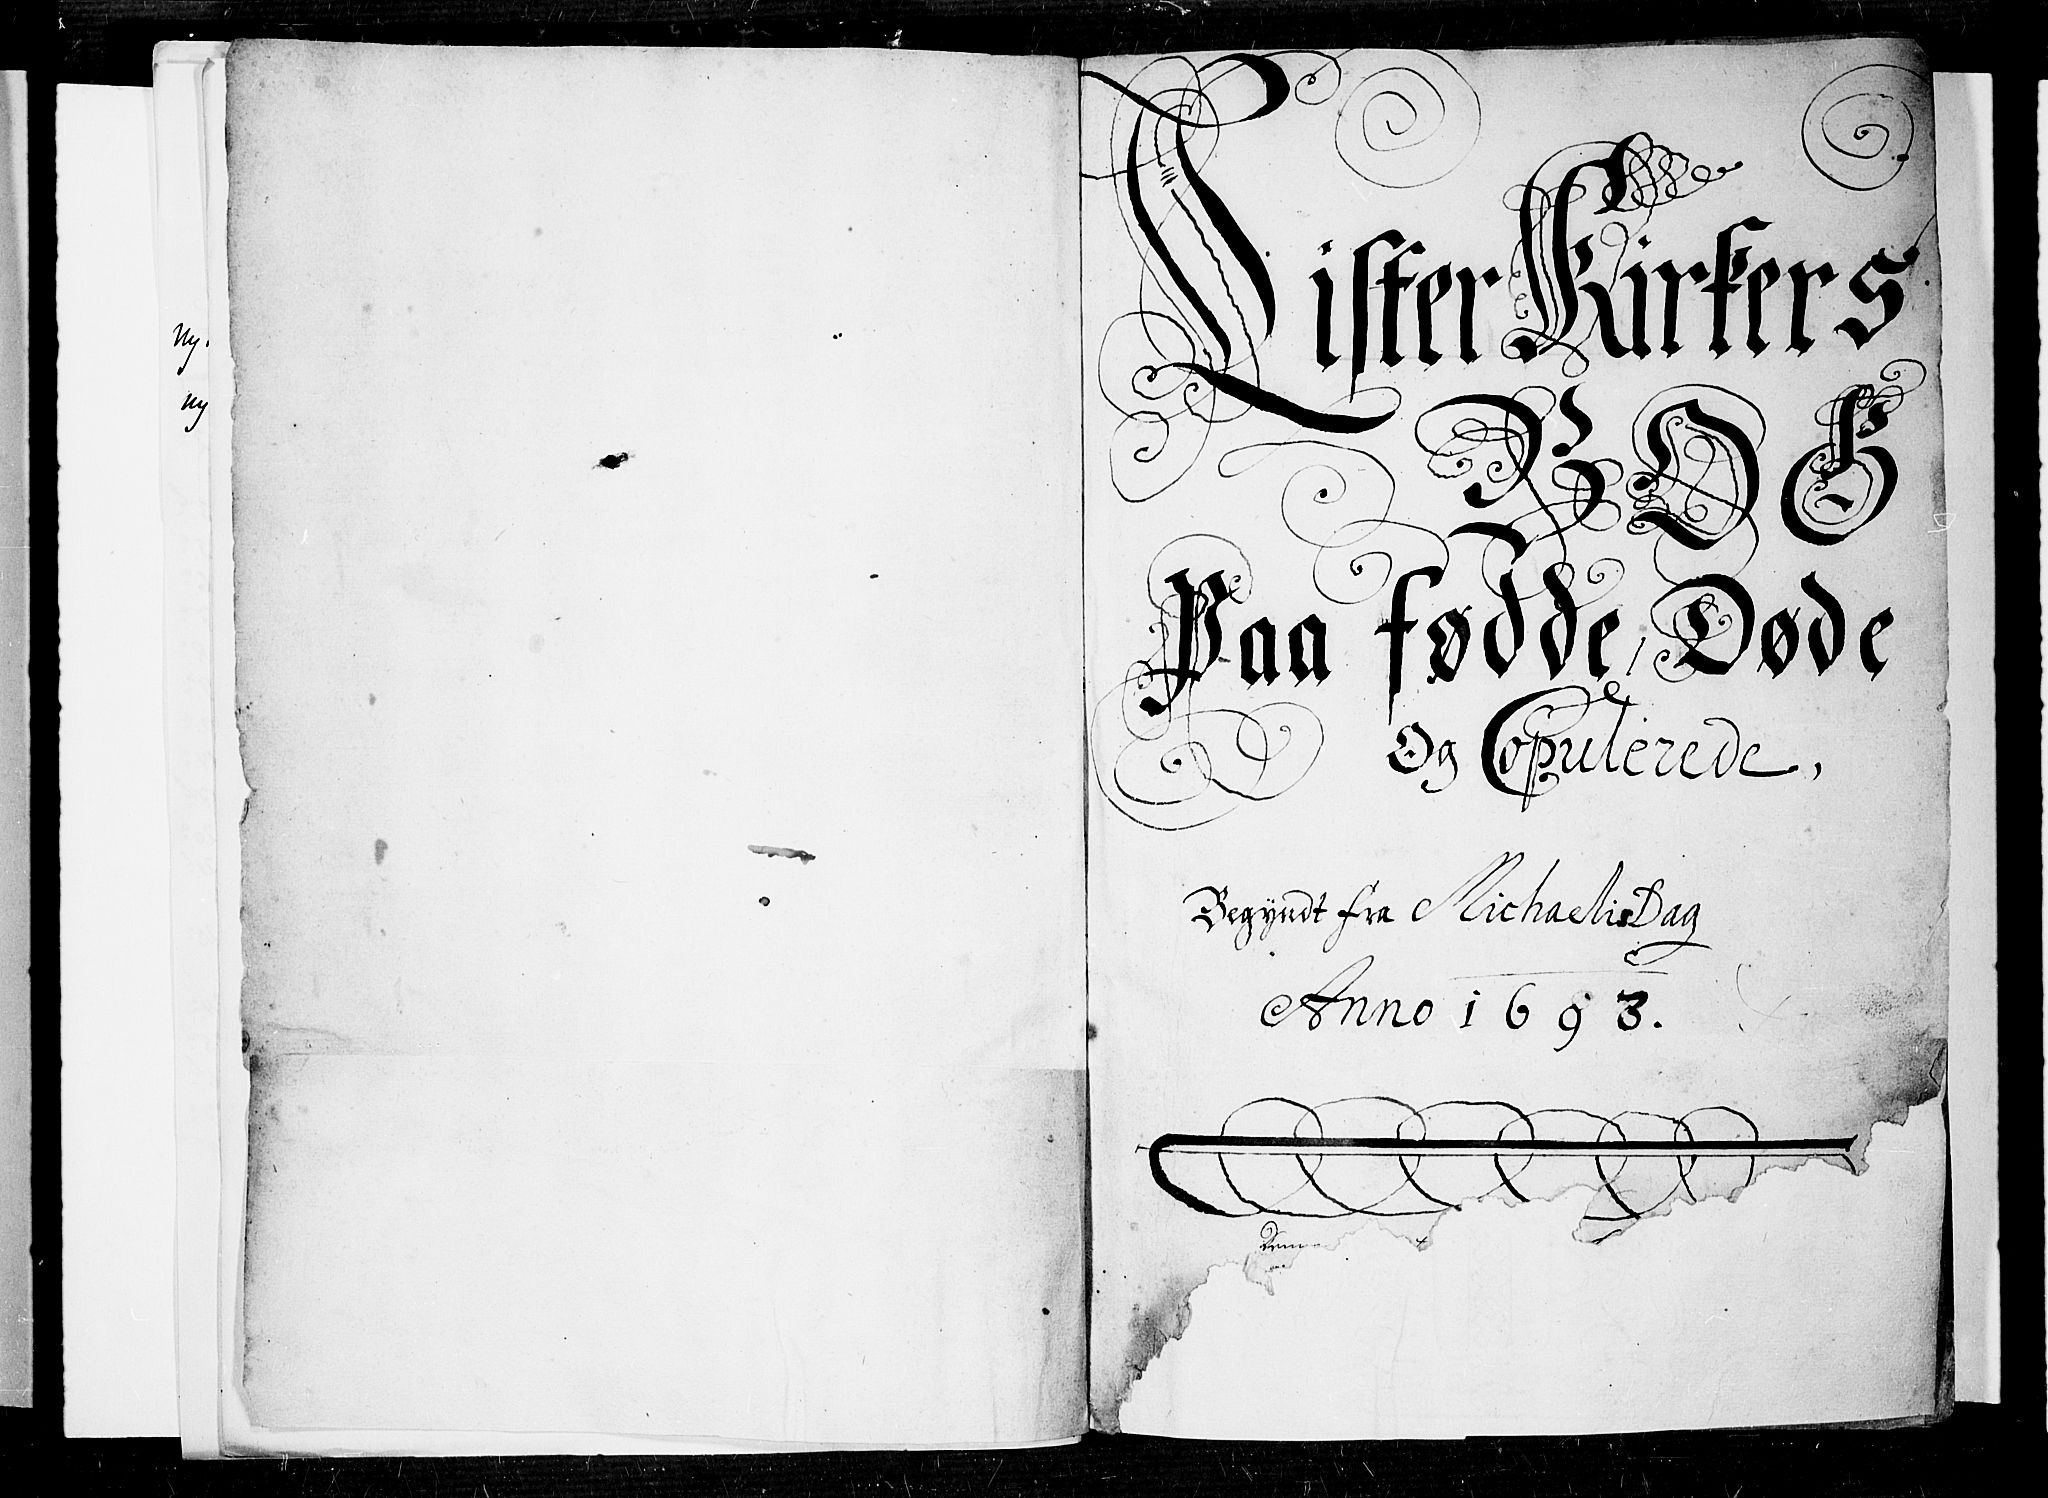 Ny
ny
Lister Kirkers
BOG
Paa fødde, Døde
Og Copulerede,
Begÿndt fra MichaelisDag
Anno 1693.